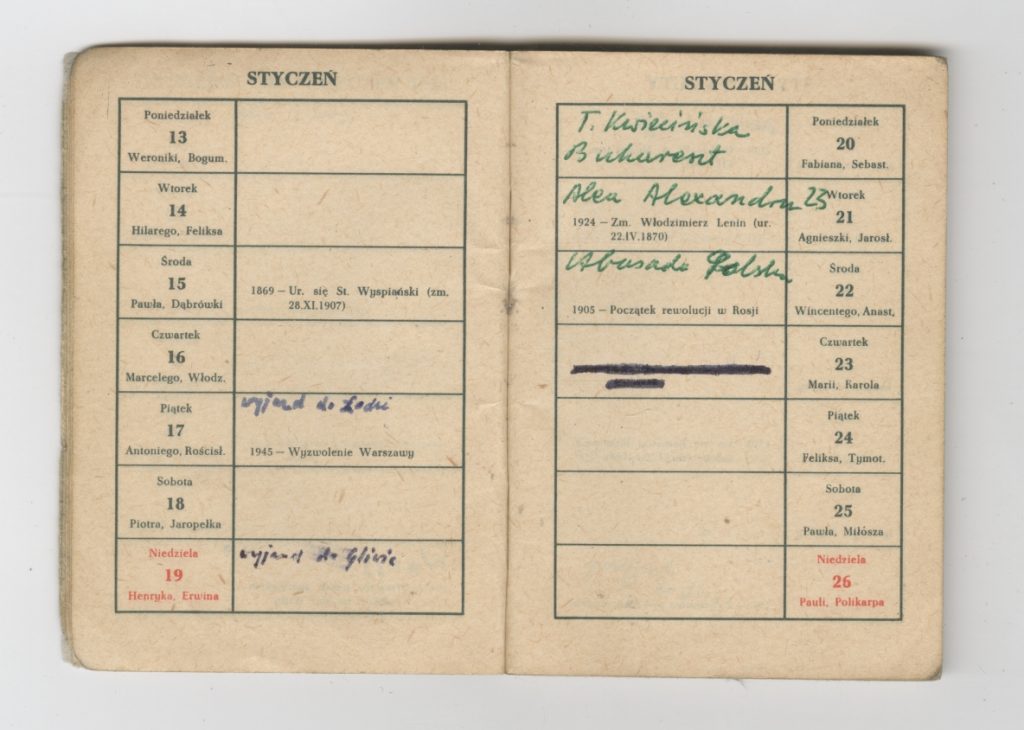 STYCZEŃ
Poniedziałek
13
Weroniki, Bogum.
Wtorek
14
Hilarego, Feliksa
Środa
15
Pawła, Dąbrówki
1869 — Ur. się St. Wyspiański (zm.
28.XI.1907)
Czwartek
16
Marcelego, Włodz.
Piątek
17
Antoniego, Rościsł.
wyjazd do Łodzi
1945 — Wyzwolenie Warszawy
Sobota
18
Piotra, Jaropełka
Niedziela
19
Henryka, Erwina
wyjazd do Gliwic
STYCZEŃ
T. Kwiecińska
Bukareszt
Poniedziałek
20
Fabiana, Sebast.
Alea Alexandru 23
1924 — Zm. Włodzimierz Lenin (ur.
22.IV.1870)
Wtorek
21
Agnieszki, Jarosł.
Abasada Polska
1905 — Początek rewolucji w Rosji
Środa
22
Wincentego, Anast.
Czwartek
23
Marii, Karola
Piątek
24
Feliksa, Tymot.
Sobota
25
Pawła, Miłósza
Niedziela
26
Pauli, Polikarpa